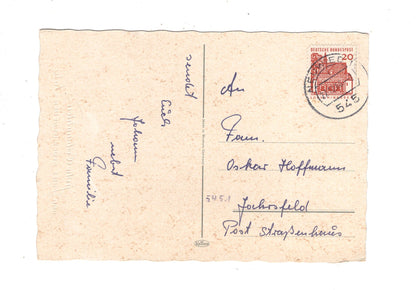 sendet
Euch
Johann
nebst
Familie
DEUTSCHE BUNDESPOST
20
545
An
Fam.
Oskar Hoffmann
545.1
Jahrsfeld
Post Straßenhaus